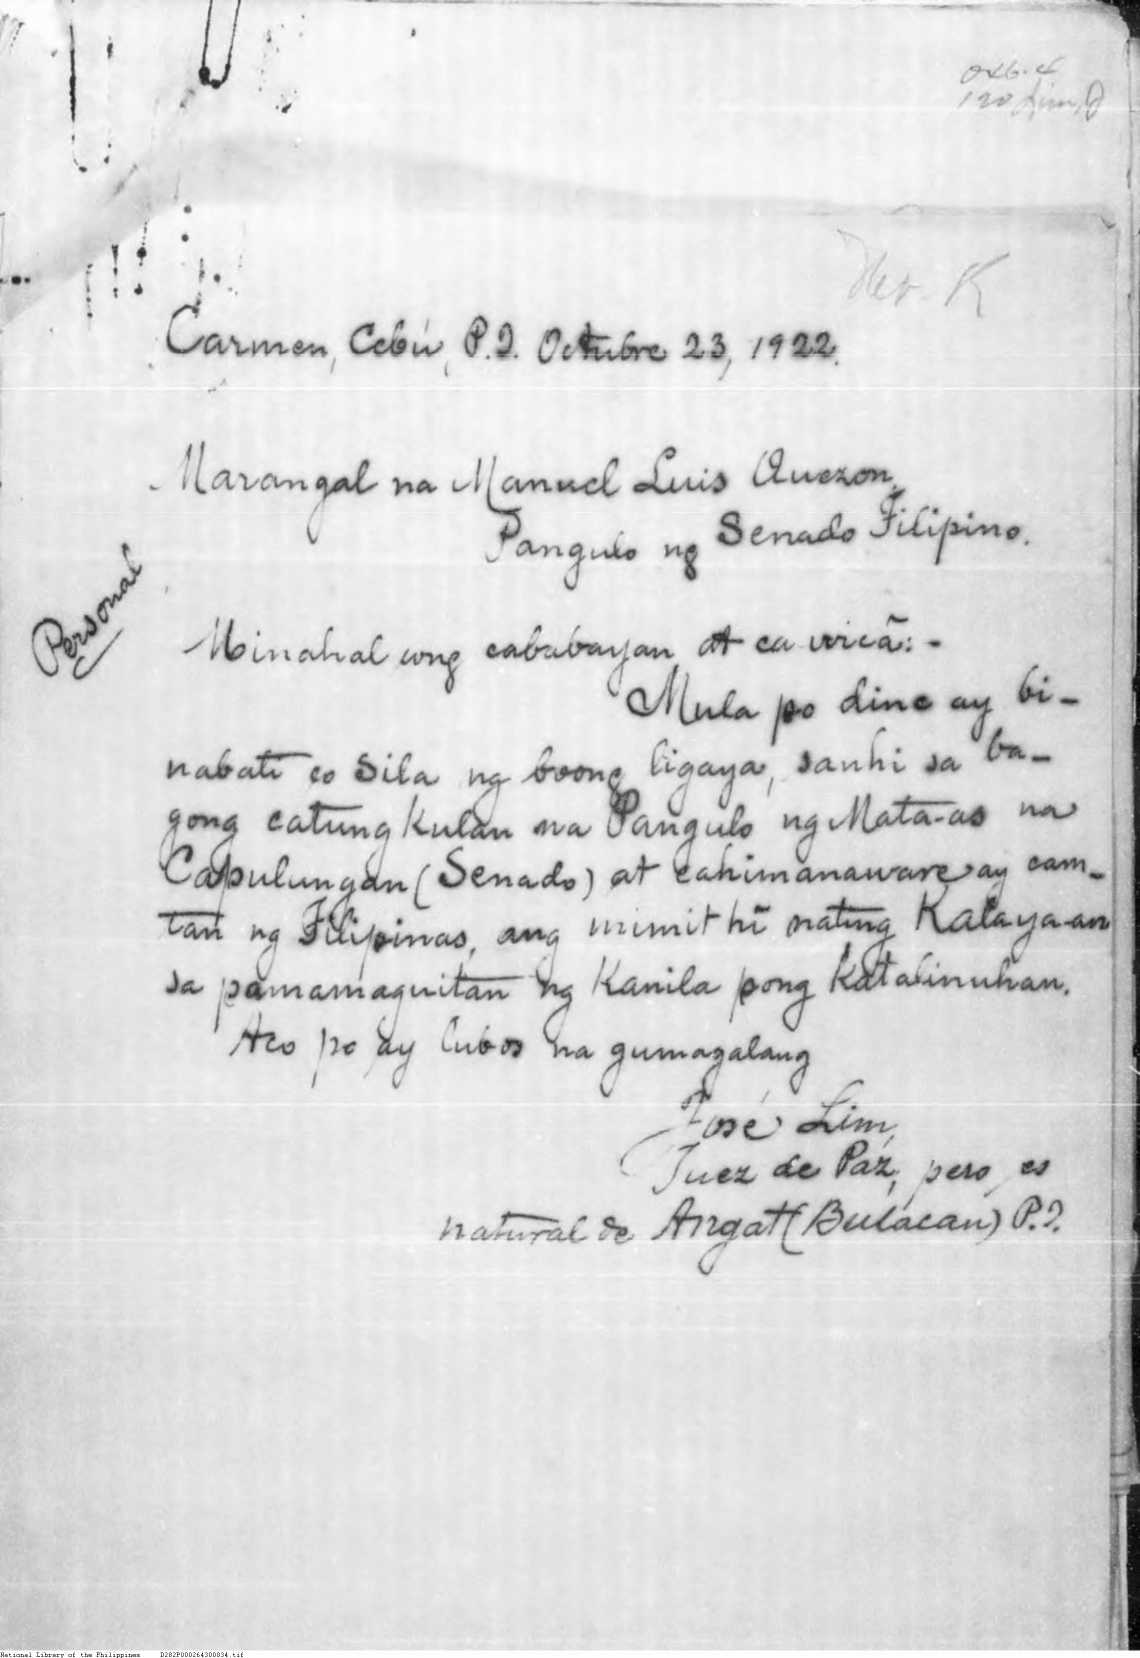 Lim, J
Carmen, Cebú, P.I. Octubre 23, 1922.
Marangal na Manuel Luis Quezon,
Pangulo ng Senado Filipino.
Personal
Minahal cong cababayan at ca wicã: -
Mula po dine ay bi-
nabati co Sila ng boong ligaya, sanhi sa ba-
gong catungkulan na Pangulo ng Mata-as na
Capulungan (Senado) at cahimanaware ay cam-
tan ng Filipinas, ang mimithi nating Kalaya-an
sa pamamaguitan ng Kanila pong Katalinuhan.
Aco po ay lubos na gumagalang
José Lim,
Juez de Paz, pero es
natural de Angat (Bulacan) P.I.
National Library of the Philippines D282P000264300834.tif